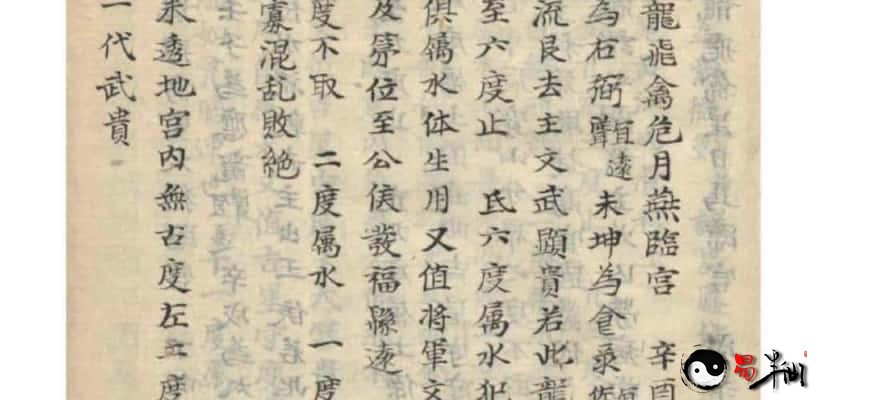 龍飛禽危月燕臨宮 辛酉
為右弼難宜遠未坤為倉
流艮去主文武顕貴若此龍
至六度止 氐六度属水犯
俱属水体生用又值将軍文
及第位至公侯發福綿遠
度不取 二度属水 一度
寡混乱敗絶
未透地宫内無古度左五度
一代武貴
易半仙